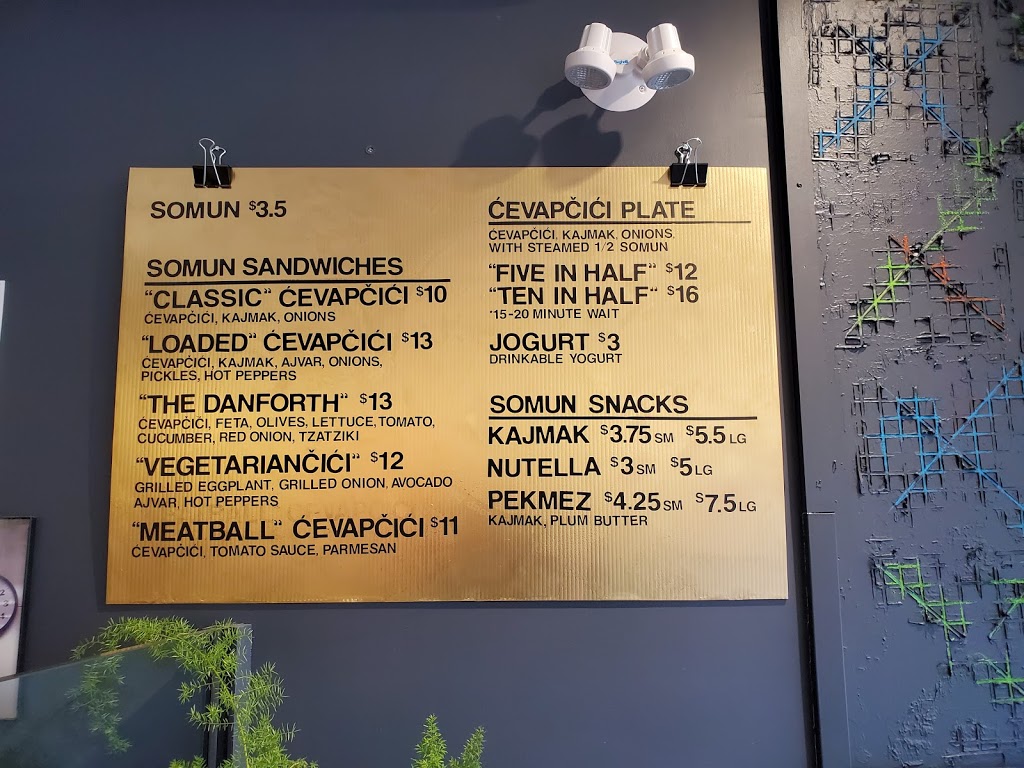 SOMUN $3.5
SOMUN SANDWICHES
"CLASSIC" ĆEVAPČIĆI $10
ĆEVAPČIĆI, KAJMAK, ONIONS
"LOADED" ĆEVAPČIĆI $13
ĆEVAPČIĆI, KAJMAK, AJVAR, ONIONS,
PICKLES, HOT PEPPERS
"THE DANFORTH" $13
ĆEVAPČIĆI, FETA, OLIVES, LETTUCE, TOMATO,
CUCUMBER, RED ONION, TZATZIKI
"VEGETARIANČIĆI" $12
GRILLED EGGPLANT, GRILLED ONION, AVOCADO
AJVAR, HOT PEPPERS
"MEATBALL" ĆEVAPČIĆI $11
ĆEVAPČIĆI, TOMATO SAUCE, PARMESAN
ĆEVAPČIĆI PLATE
ĆEVAPČIĆI, KAJMAK, ONIONS,
WITH STEAMED 1/2 SOMUN
"FIVE IN HALF" $12
"TEN IN HALF" $16
*15-20 MINUTE WAIT
JOGURT $3
DRINKABLE YOGURT
SOMUN SNACKS
KAJMAK $3.75 SM $5.5 LG
NUTELLA $3 SM $5 LG
PEKMEZ $4.25 SM $7.5 LG
KAJMAK, PLUM BUTTER